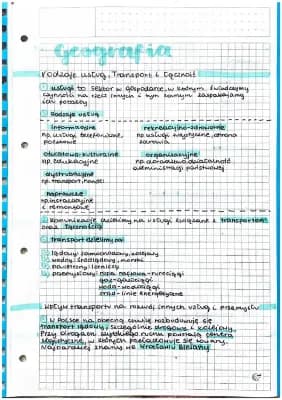 Geografia
Rodzaje usług, Transport i Łączność
usługi to sektor w gospodarce, w którym świadczymy
czynności na rzecz innych i tym samym zaspakajamy
ich potrzeby
Rodzaje usług
informacyjne
np. usługi telefoniczne,
pocztowe
rekreacyjno-zdrowotne
np. usługi turystyczne, ochrona
zdrowia
oświatowo-kulturalne
np. edukacyjne
organizacyjne
np. działalność
administracji państwowej
dystrybucyjne
np. transport, handel
naprawcze
np. instalacyjne
i remontowe
komunikacje dzielimy na usługi związane z transportem
oraz łącznością
transport dzielimy na:
lądowy: samochodowy, kolejowy
wodny: śródlądowy, morski
powietrzny: lotniczy
przemysłowy: ropa naftowa-rurociągi
gaz-gazociągi
woda-wodociągi
prąd-linie energetyczne
Wpływ transportu na rozwój innych usług i przemysłu
W Polsce na obecną chwilę rozbudowuje się
transport lądowy, szczególnie drogowy i kolejowy.
Przy drogach szybkiego ruchu powstają centra
logistyczne, w których przeładowuje się towary.
Najbardziej znany we Wrocławiu Bielany